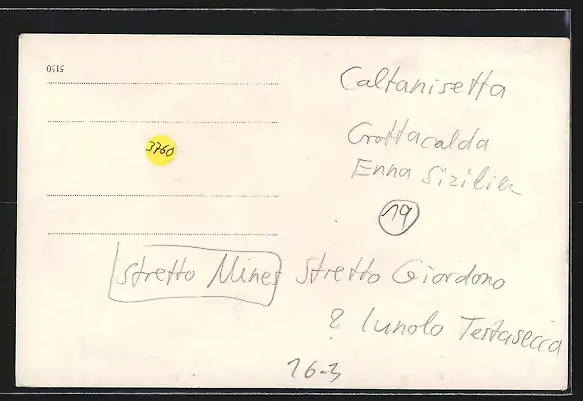 5150
Caltanisetta
3760
Grottacalda
Enna Sizilien
19
Stretto Mines Stretto Giordono
? lunolo Testasecca
16-3